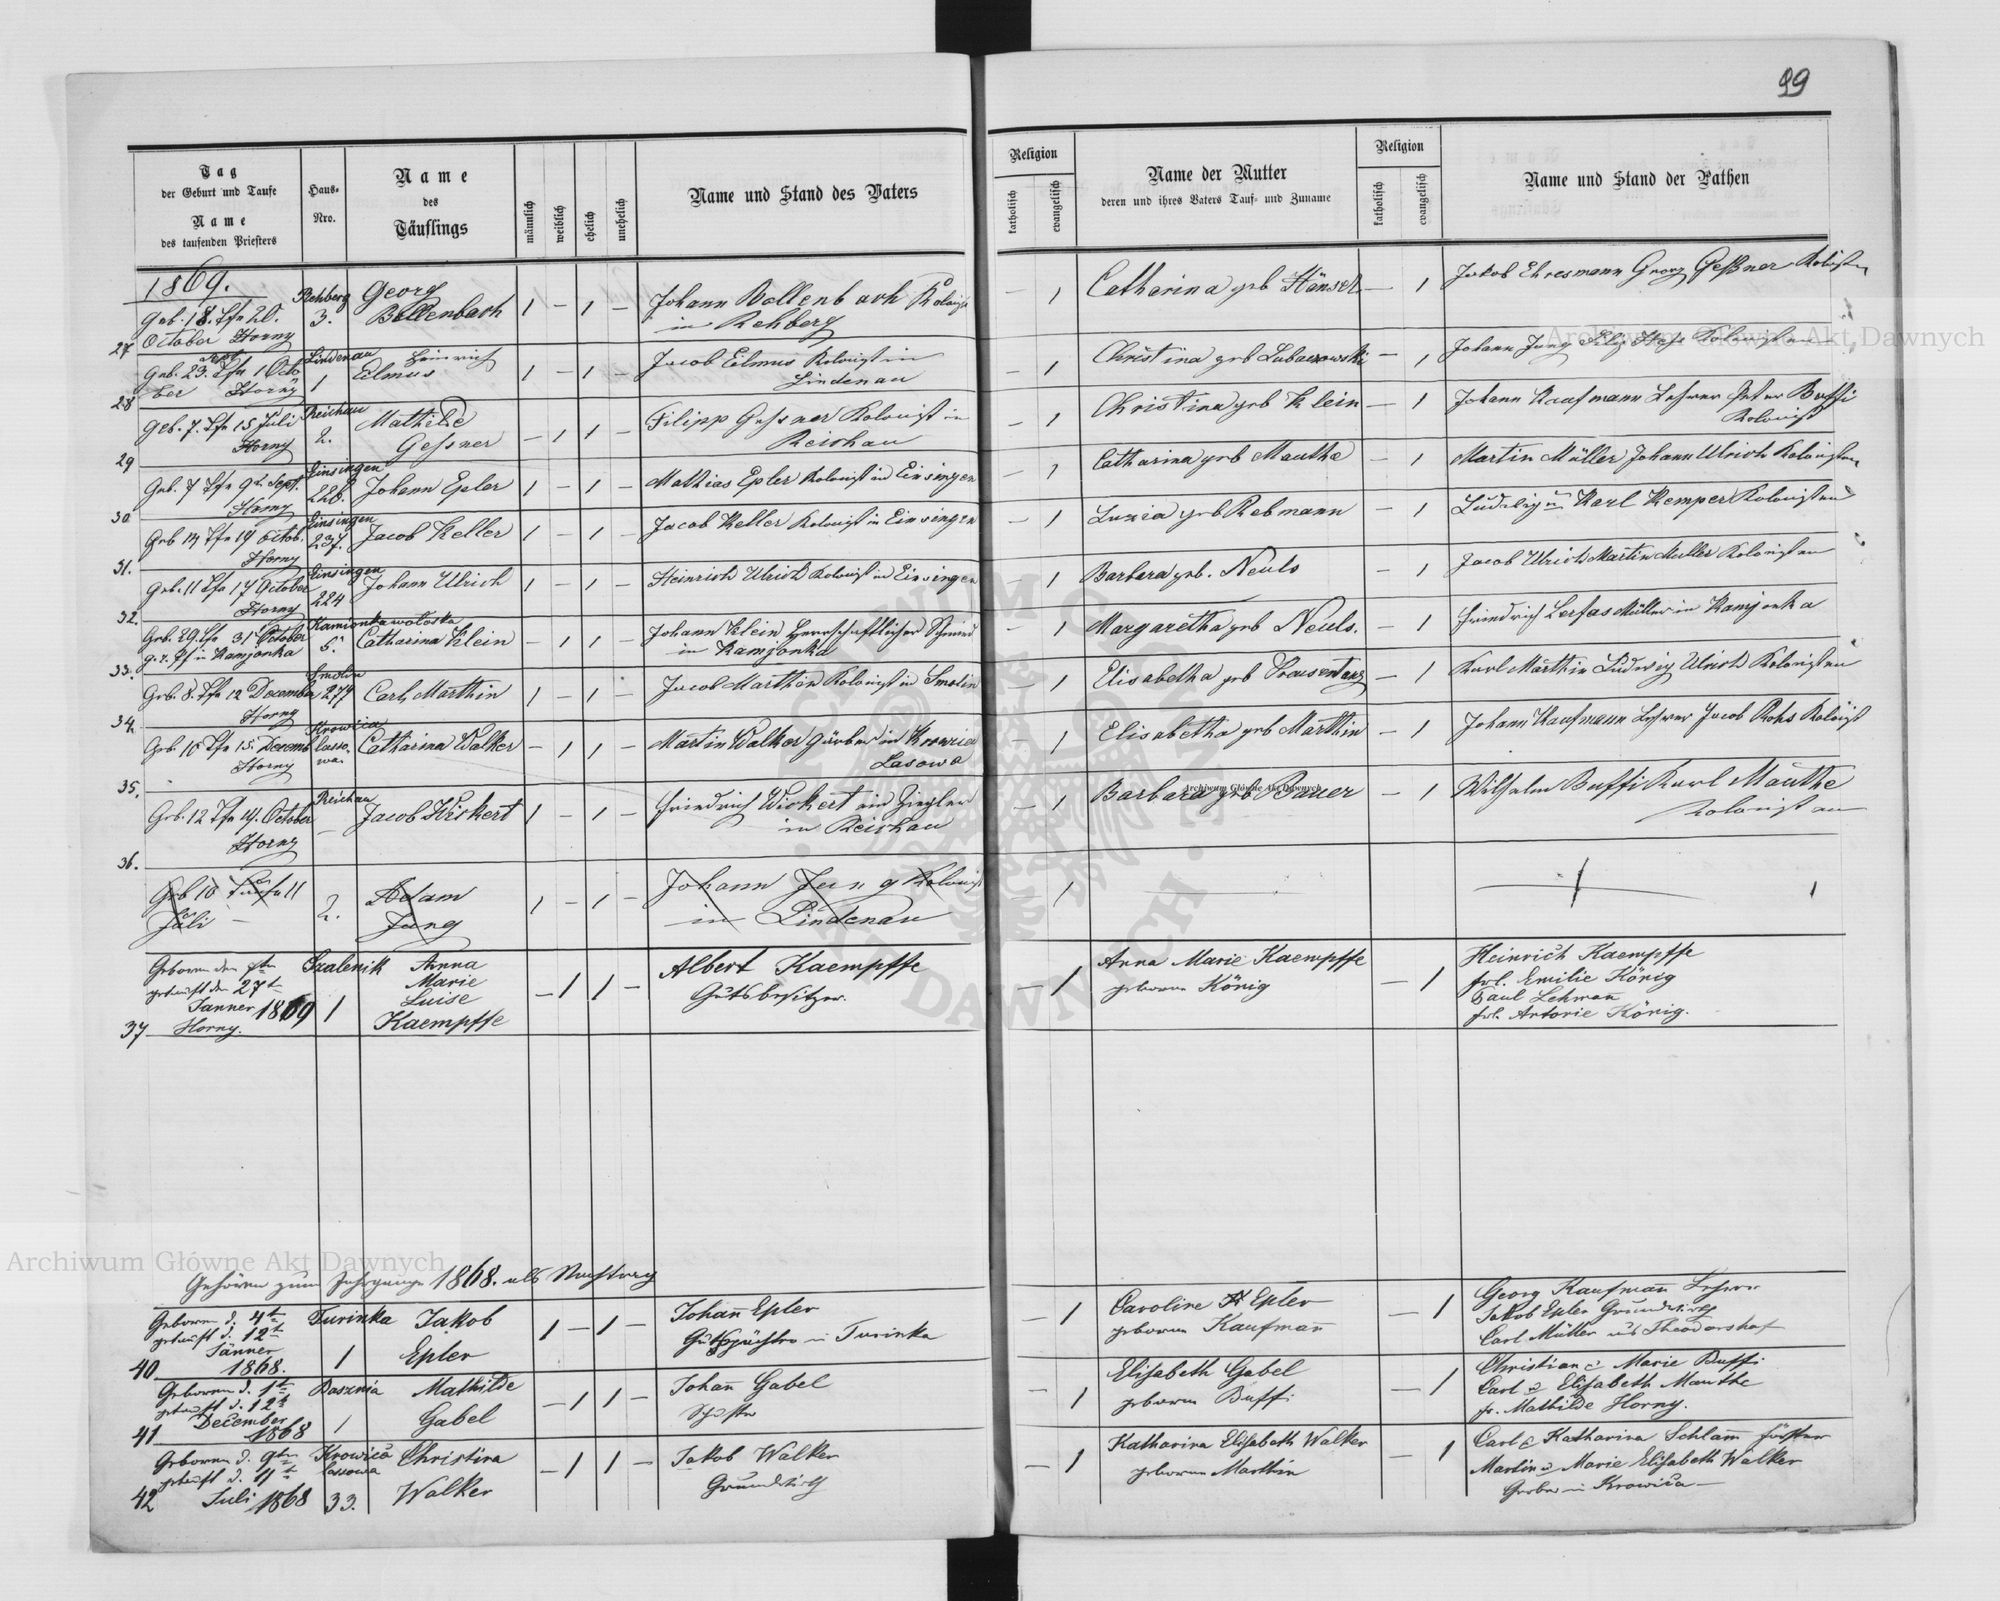 99
Tag
der Geburt und Taufe
Name
des taufenden Priesters
Haus-
Nro.
Name
des
Täuflings
männlich
weiblich
ehelich
unehelich
Name und Stand des Vaters
Religion
katholisch
evangelisch
Name der Mutter
deren und ihres Vaters Tauf- und Zuname
Religion
katholisch
evangelisch
Name und Stand der Pathen
1869.
27
Geb. 18. Tfe 20.
October Horny
Rehberg
3.
Georg
Bollenbach
1 – 1 –
Johann Bollenbach Kolonist
in Rehberg
– 1
Catharina geb Hänsel
– 1
Jakob Ehresmann Georg Geßner Kolisten
28
Geb. 23. Sept Tfe 1 Octo
ber Horny
Lindenau
1
Heinrich
Eilmus
1 – 1 –
Jacob Eilmus Kolonist in
Lindenau
– 1
Christina geb Lubaczowski
– 1
Johann Jung Kolonisten
29
Geb. 7. Tfe 15 Juli
Horny
Reichau
2.
Mathilde
Gessner
– 1 1 –
Filipp Gessner Kolonist in
Reichau
– 1
Christina geb Klein
– 1
Johann Kaufmann Lehrer Peter Buffi
Kolonist
30
Geb. 7 Tfe 9ten Sept.
Horny
Einsingen
226.
Johann Epler
1 – 1 –
Mathias Epler Kolonist in Einsingen
– 1
Catharina geb Mauthe
– 1
Martin Müller Johann Ulrich Kolonisten
31.
Geb 14 Tfe 19 Octob.
Horny
Einsingen
237.
Jacob Keller
1 – 1 –
Jacob Keller Kolonist in Einsingen
– 1
Luzia geb Rebmann
– 1
Ludwig u Karl Kemper Kolonisten
32.
Geb. 11 Tfe 17 October
Horny
Einsingen
224
Johann Ulrich
1 – 1 –
Heinrich Ulrich Kolonist in Einsingen
– 1
Barbara geb. Neuls
– 1
Jacob Ulrich Martin Müller Kolonisten
33.
Geb. 29. Tfe 31 October
g. v. Pf in Kamjonka
Kamionka wołoska
5.
Catharina Klein
– 1 1 –
Johann Klein Herrschaftlicher Schmied
in Kamjonka
– 1
Margaretha geb Neuls.
– 1
Friedrich Lerfas Müller in Kamjonka
34.
Geb. 8. Tfe 12 December
Horny
Smolin
274
Carl Marthin
1 – 1 –
Jacob Marthin Kolonist in Smolin
– 1
Elisabetha geb
– 1
Karl Marthin Ludwig Ulrich Kolonisten
35.
Geb. 10 Tfe 15. Decemb
Horny
Krowica
lasso
wa
Catharina Walker
– 1 1 –
Martin Walker Gärber in Krowica
Lasowa
– 1
Elisabetha geb Marthin
– 1
Johann Kaufmann Lehrer Jacob Rohs Kolonist
36.
Geb. 12 Tfe 14. October
Horny
Reichau
–
Jacob Wickert
1 – 1 –
Friedrich Wickert ein Ziegler
in Reichau
– 1
Barbara geb Bauer
– 1
Wilhelm Buffi Karl Mauthe
Kolonisten
Geb 10 Taufe 11
Juli –
2.
Adam
Jung
1 – 1 –
Johann Jung Kolonist
in Lindenau
– 1
1
37
Geboren den 7ten
getauft den 27t
Janner 1869
Horny.
Szalenik
1
Anna
Marie
Luise
Kaempffe
– 1 1 –
Albert Kaempffe
Gutsbesitzer.
– 1
Anna Marie Kaempffe
geborene König
– 1
Heinrich Kaempffe
frl. Emilie König
Paul Lehman̄
frl. Antonie König.
Gehören zum Jahrgange 1868. als Nachtrag
40
Geboren d. 4t
getauft d. 12t
Jänner
1868.
Turinka
1
Jakob
Epler
1 – 1 –
Johan̄ Epler
Gutspächter in Turinka
– 1
Caroline Epler
geborene Kaufman̄
– 1
Georg Kaufman̄ Lehrer
Jakob Epler Grundwirth
Carl Müller aus Theodorshof
41
Geboren d. 1t
getauft d. 12t
December
1868
Basznia
1
Mathilde
Gabel
– 1 1 –
Johan̄ Gabel
Schuster
– 1
Elisabeth Gabel
geborene Buffi
– 1
Christian & Marie Buffi
Carl u Elisabeth Mauthe
fr. Mathilde Horny.
42
Geboren d. 9ten
getauft d. 11t
Juli 1868
Krowica
lassowa
33.
Christina
Walker
– 1 1 –
Jakob Walker
Grundwirth
– 1
Katharina Elisabeth Walker
geborene Marthin
– 1
Carl & Katharina Schlam̄ Förster
Martin u Marie Elisabeth Walker
Gerber in Krowica –
Archiwum Główne Akt Dawnych
Archiwum Główne Akt Dawnych
Archiwum Główne Akt Dawnych
ARCHIWUM GŁÓWNE · AKT DAWNYCH ·